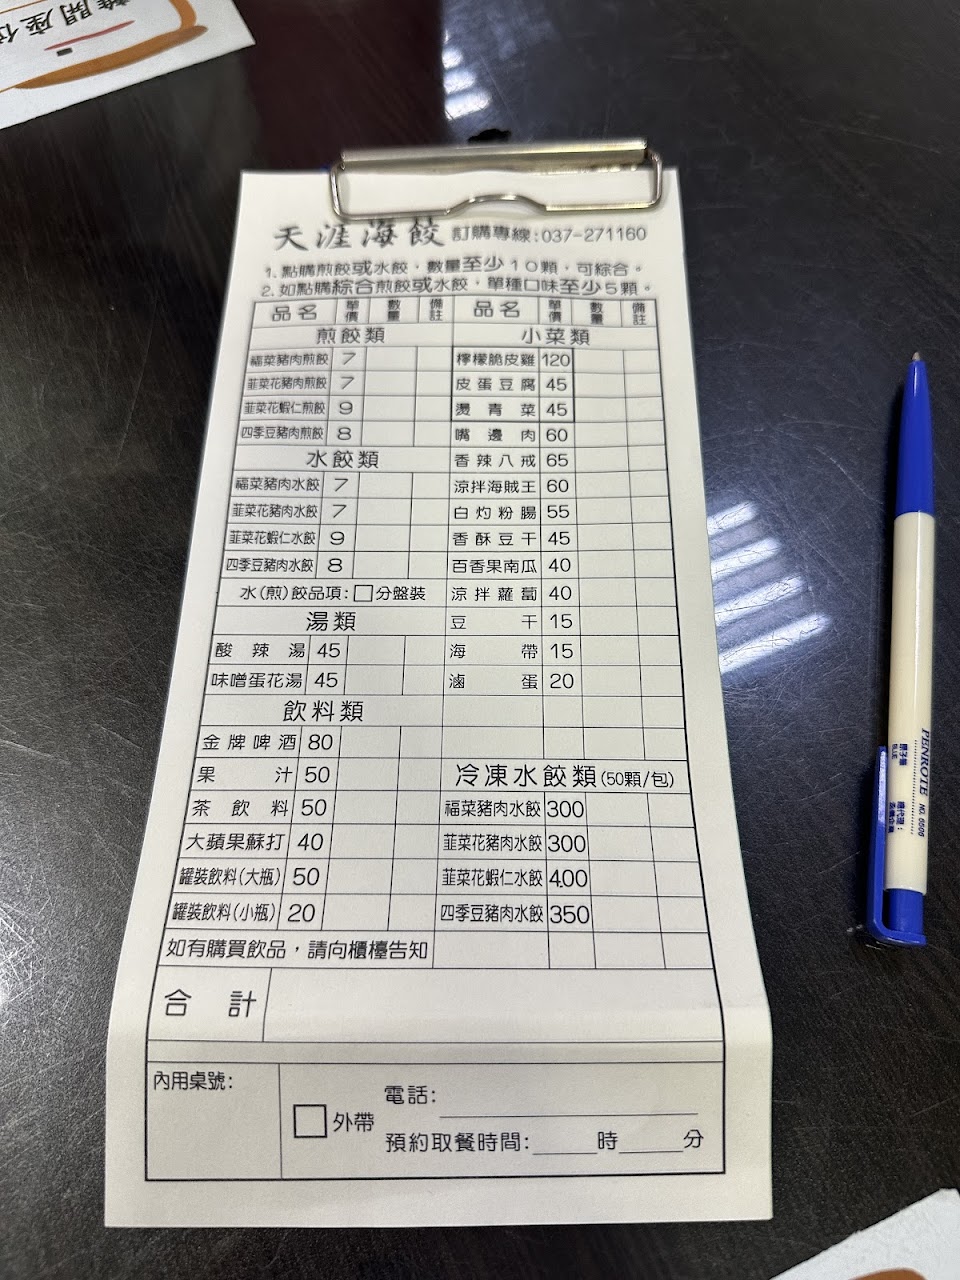 離開座位
天涯海餃 訂購專線:037-271160
1. 點購煎餃或水餃,數量至少10顆,可綜合。
2. 如點購綜合煎餃或水餃,單種口味至少5顆。
品名 單價 數量 備註
煎餃類
福菜豬肉煎餃 7
韮菜花豬肉煎餃 7
韮菜花蝦仁煎餃 9
四季豆豬肉煎餃 8
水餃類
福菜豬肉水餃 7
韮菜花豬肉水餃 7
韮菜花蝦仁水餃 9
四季豆豬肉水餃 8
水(煎)餃品項:□分盤裝
湯類
酸辣湯 45
味噌蛋花湯 45
飲料類
金牌啤酒 80
果汁 50
茶飲料 50
大蘋果蘇打 40
罐裝飲料(大瓶) 50
罐裝飲料(小瓶) 20
如有購買飲品,請向櫃檯告知
品名 單價 數量 備註
小菜類
檸檬脆皮雞 120
皮蛋豆腐 45
燙青菜 45
嘴邊肉 60
香辣八戒 65
涼拌海賊王 60
白灼粉腸 55
香酥豆干 45
百香果南瓜 40
涼拌蘿蔔 40
豆干 15
海帶 15
滷蛋 20
冷凍水餃類(50顆/包)
福菜豬肉水餃 300
韮菜花豬肉水餃 300
韮菜花蝦仁水餃 400
四季豆豬肉水餃 350
合計
內用桌號:
□外帶
電話:
預約取餐時間:_____時_____分
PENROTE NO. 6506